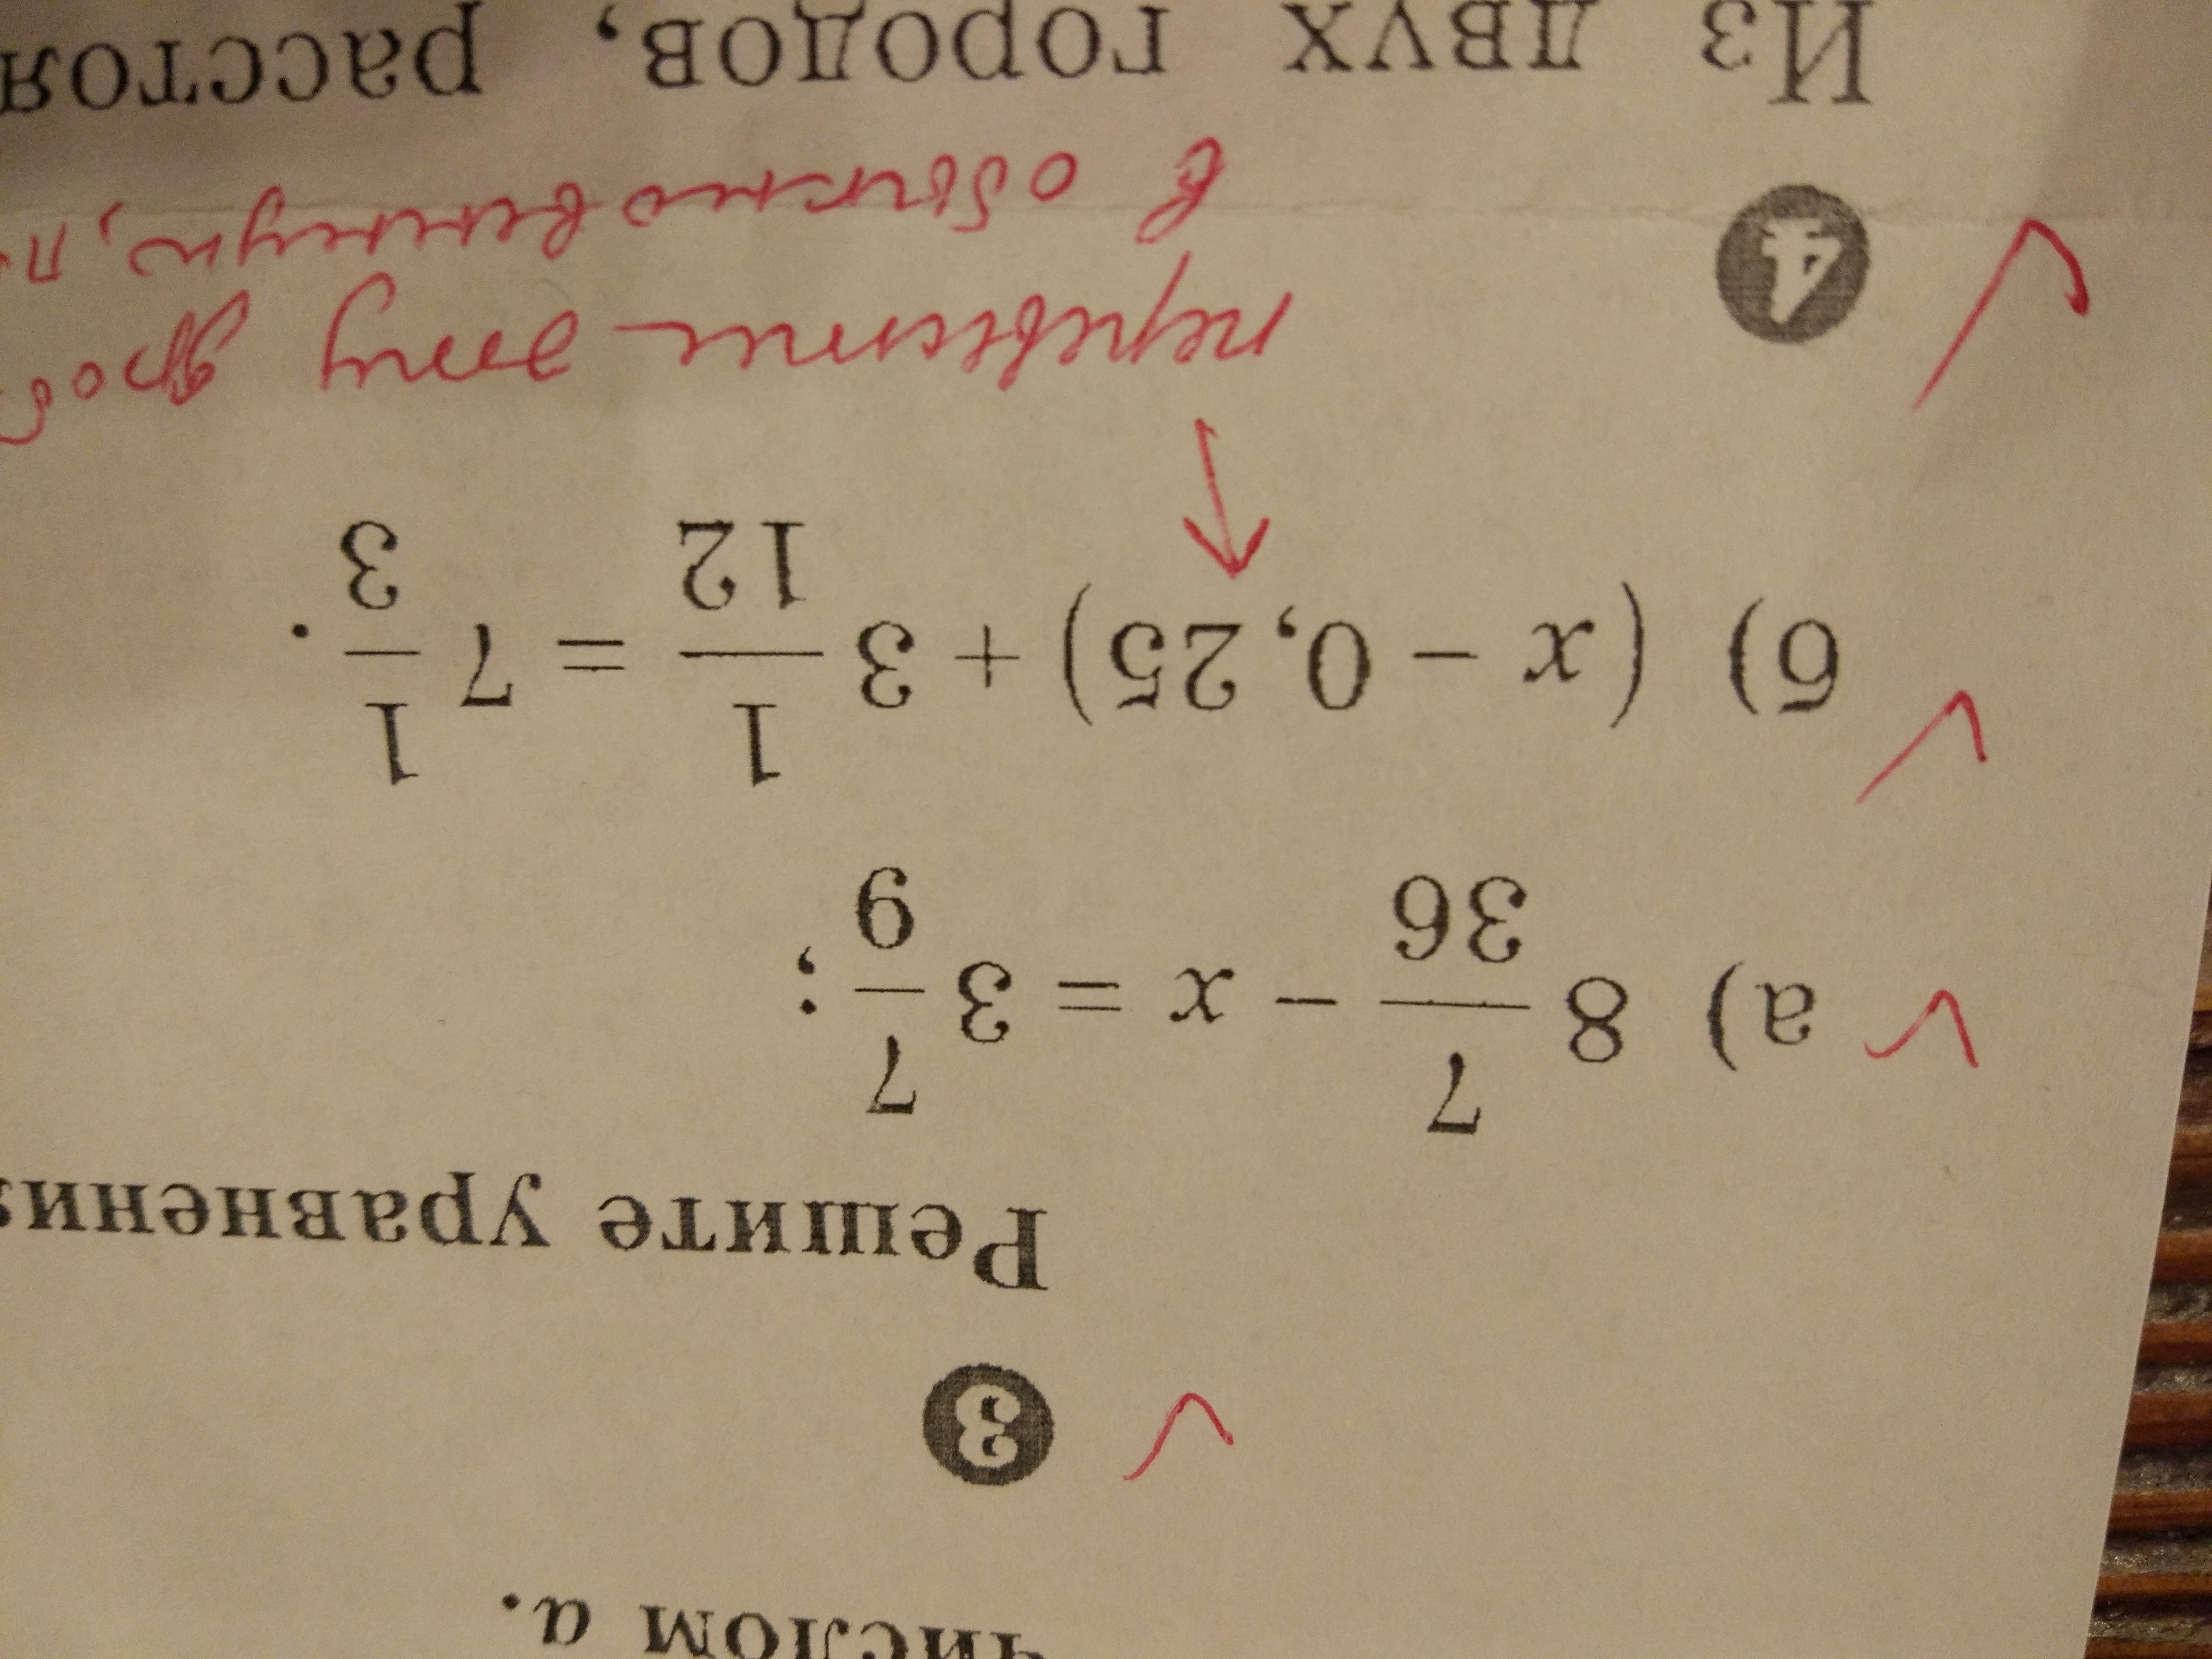 числом a.
3
Решите уравнения
а) 8 7/36 − x = 3 7/9 ;
б) (x − 0,25) + 3 1/12 = 7 1/3 .
перевести эту дроб
4 в обыкновенную, п
Из двух городов, расстоя